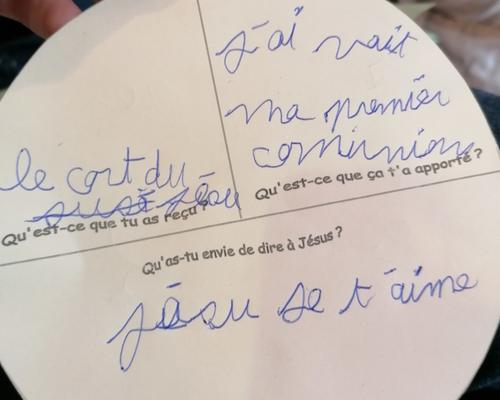 le cort du
jésu
Qu'est-ce que tu as reçu ?
j'ai vait
ma premier
cominion
Qu'est-ce que ça t'a apporté ?
Qu'as-tu envie de dire à Jésus ?
jésu se t'aime